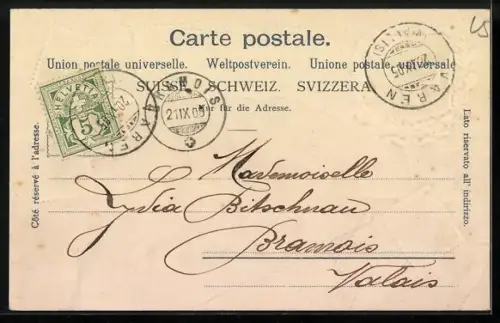 Carte postale.
Union postale universelle. Weltpostverein. Unione postale universale
SUISSE. SCHWEIZ. SVIZZERA.
Nur für die Adresse.
Côté réservé à l'adresse.
Lato riservato all' indirizzo.
HELVETIA
5
BRAMOIS
21 IX 05
VAREN
IX.05
Mademoiselle
Lydia Bitschnau
Bramois
Valais